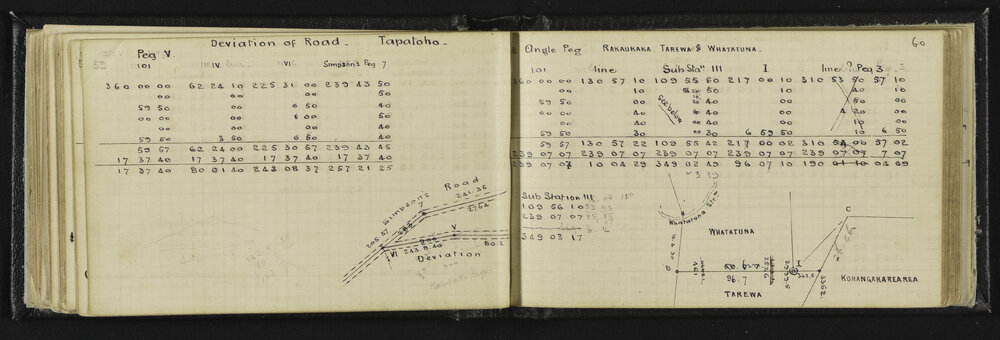 Deviation of Road. Tapatoho.
Peg V.
59 101 IV VI Simpson's Peg 7
360 00 00 62 24 10 225 31 00 239 43 50
00 00 00 50
59 50 00 00 40
00 00 6 00 50
00 00 00 40
59 50 3 50 6 50 40
59 57 62 24 00 225 30 57 239 43 45
17 37 40 17 37 40 17 37 40 17 37 40
17 37 40 80 01 40 243 08 37 257 21 25
Simpson's Road
7
241.35
2764
206.37
VI
200
243.8.40
V
80.1
Deviation
60
Angle Peg RAKAUKAKA TAREWA & WHATATUNA.
101 line Sub Stan III I line Peg 3
360 00 00 130 57 10 109 55 60 217 00 10 310 53 50 57 10
00 10 50 00 40 10
59 50 00 40 00 50 00
00 00 40 00 20 40
00 40 40 00 10 00
59 50 30 30 6 59 50 10 6 50
see below
59 57 130 57 22 109 55 42 217 00 02 310 54 00 57 02
239 07 07 239 07 07 239 07 07 239 07 07 239 07 07 7 07
239 07 07 10 04 29 349 02 49 96 07 10 190 01 10 04 09
3 19
Sub Station III
109 56 10
239 07 07
349 03 17
Whatatuna Str
WHATATUNA
461
96.7
252.6
2099.5
I
362.5
3362
C
KOHANGAKAREAREA
TAREWA